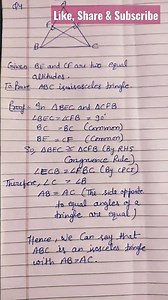 Q4
Like, Share & Subscribe
A
F
E
B
C
Given BE and CF are two equal
altitudes.
To Prove ABC is isosceles tringle.
Proof - In △BEC and △CFB
∠BEC = ∠CFB = 90°
BC = BC (Common)
BE = CF (Common)
So △BEC ≅ △CFB (By RHS
Congruence Rule)
∠ECB = ∠FBC (By CPCT)
Therefore, ∠C = ∠B
AB = AC (The side opposite
to equal angles of a
tringle are equal)
Hence, We can say that
ABC is an isosceles tringle
with AB = AC.